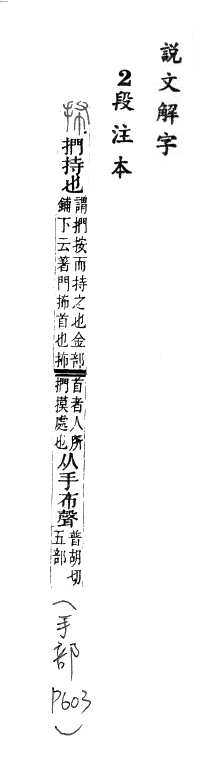 説文解字
2段注本
抪 捫持也 謂捫按而持之也金部鋪下云著門抪首也抪首者人所捫摸處也 从手布聲 普胡切五部 (手部 P603)